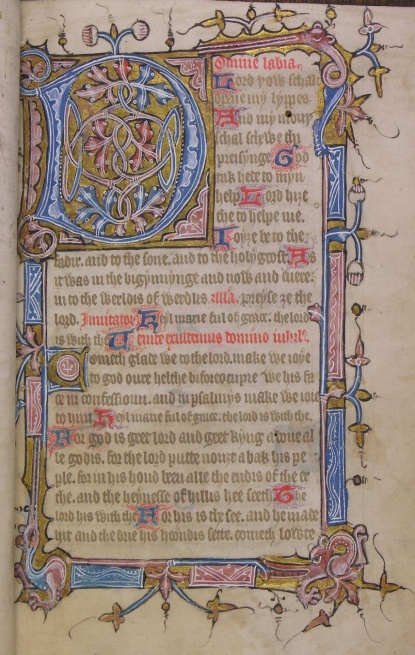 Domine labia.
Lord þow schalt
opene my lyppes.
And my mouþ
schal schewe thi
preisynge. God
tak hede to myn
help. Lord hize
the to helpe me.
Ioyze be to the
fadir. and to the sone. and to the holy gost. As
it was in the bigynnynge and now and euere.
in to the werldis of werldis. alla. preyse ze the
lord. Inuitator Heyl marie ful of grace. the lord
is with the. Venite exultemus domino iubil.
Cometh glade we to the lord. make we ioye
to god oure helthe bifore ocupie we his fa
ce in confessioun. and in psalmys make we ioie
to him. Heyl marie ful of grace. the lord is with the.
For god is greet lord and greet kyng aboue al
le godis. for the lord putte nouzt abak his pe
ple. for in his hond been alle the endis of the er
the. and the heynesse of hillus hee seeth. The
lord his with the. For his is the see. and he made
hit and the drie his hondis sette. cometh lowte